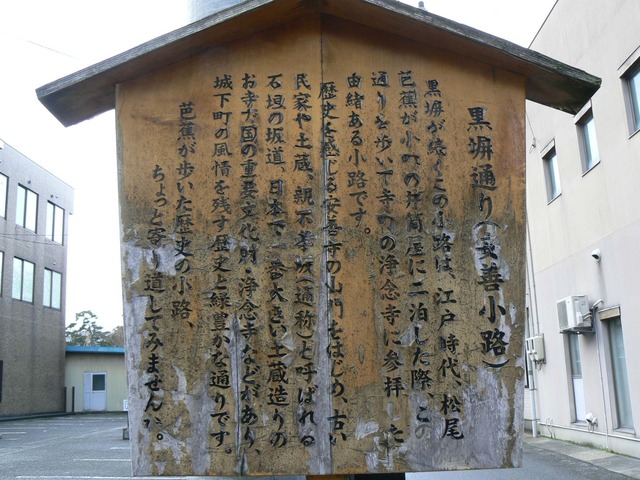 黒塀通り(安善小路)
黒塀が続くこの小路は、江戸時代、松尾
芭蕉が小町の井筒屋に二泊した際、この
通りを歩いて寺町の浄念寺に参拝した
由緒ある小路です。
歴史を感じる安善寺の山門をはじめ、古い
民家や土蔵、親不孝坂(通称)と呼ばれる
石垣の坂道、日本で一番大きい土蔵造りの
お寺で国の重要文化財・浄念寺などがあり、
城下町の風情を残す歴史と緑豊かな通りです。
芭蕉が歩いた歴史の小路、
ちょっと寄り道してみませんか。